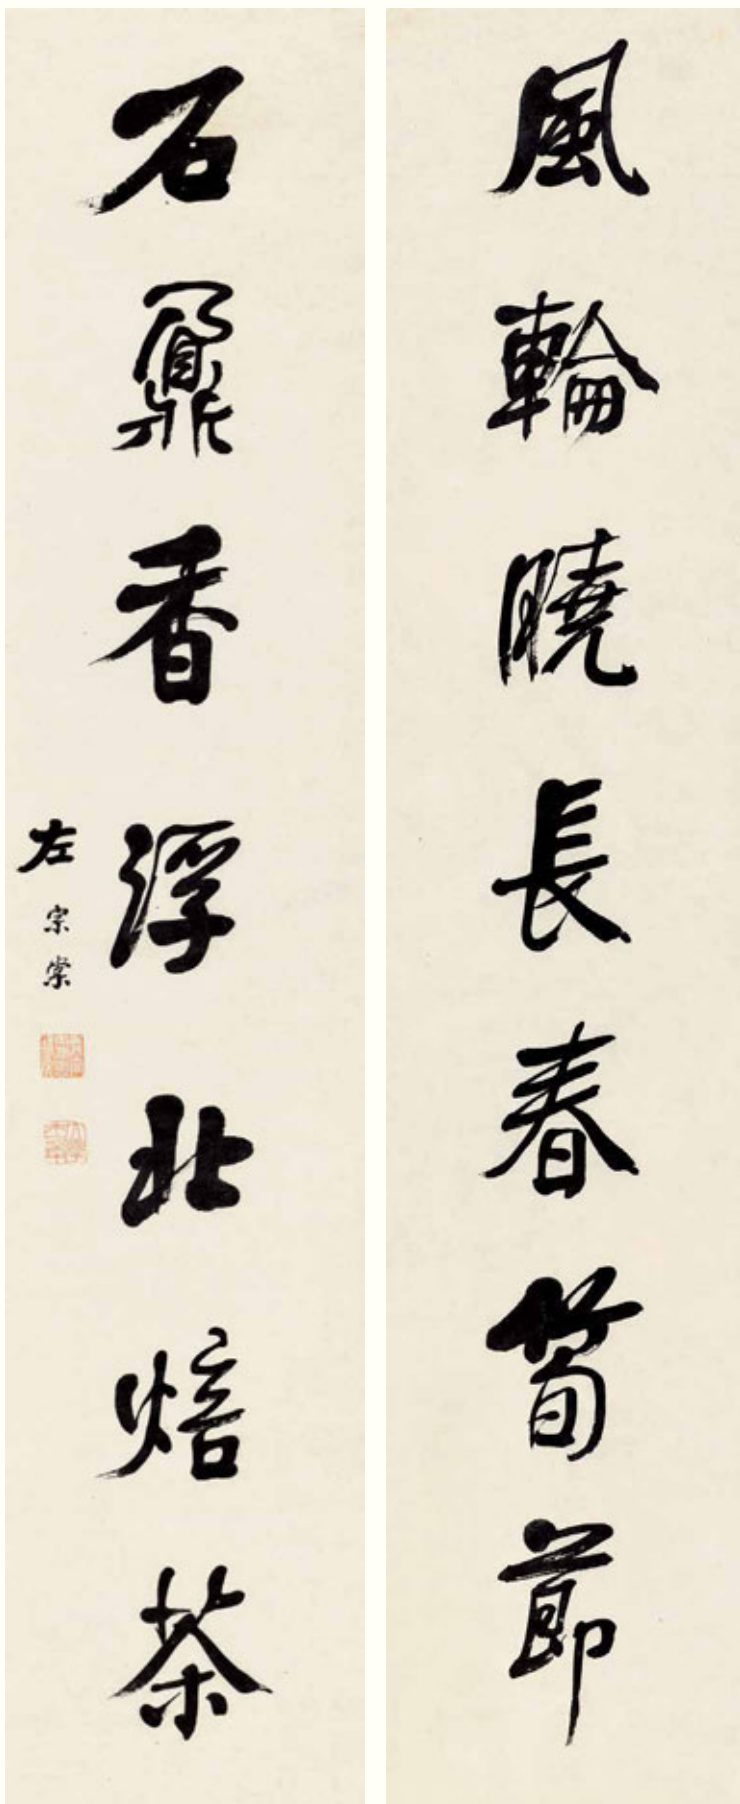 風輪曉長春筍節
石鼐香浮北焙茶
左宗棠